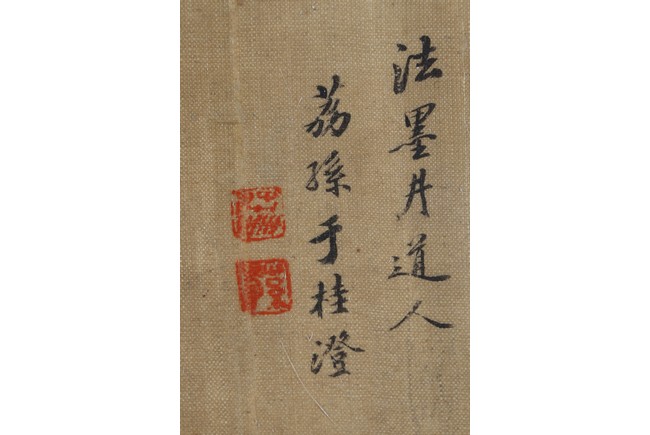 法墨井道人
荔孫于桂澄